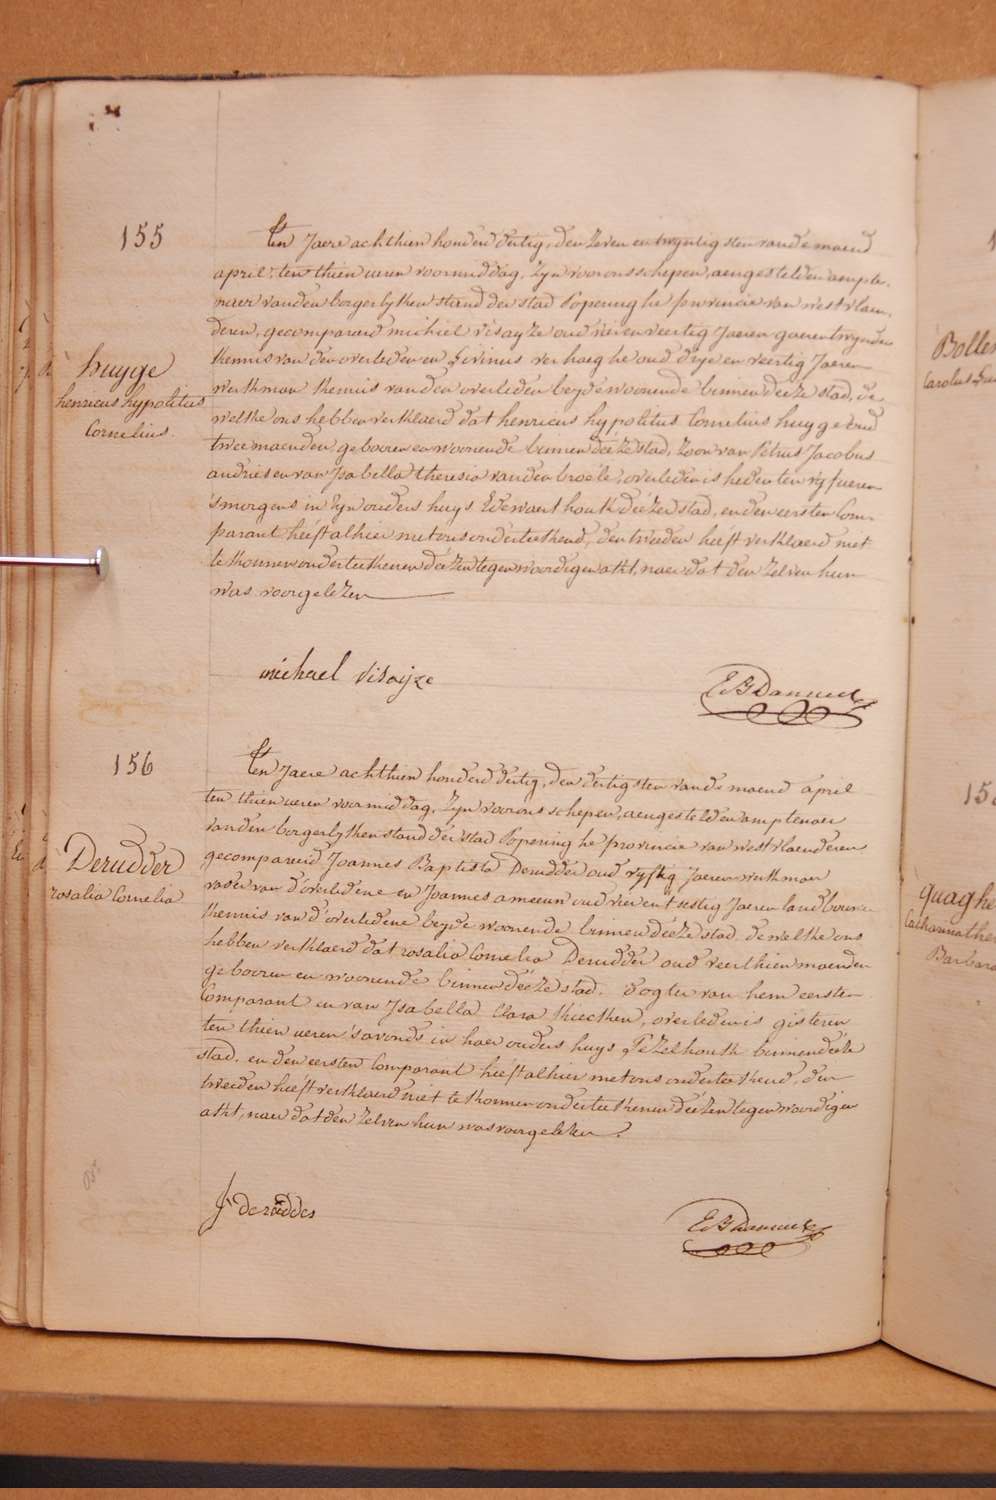 155
huyge
henricus hypolitus
Cornelius.
Ten Jaere achthien honderd dertig, den zeven en twyntigsten van de maend
april, ten thien ueren voormiddag, Zyn voor ons schepen, aengestelden ampte-
naer van den borgerlyken stand der stad Poperinghe provincie van westvlaen-
deren, gecompareerd michiel visayze oud veertig Jaeren
kennis van den overleden en Livinus verhaeghe oud drye en veertig Jaeren
werkman kennis van den overleden beyde woonende binnen deeze stad, de
welke ons hebben verklaerd dat henricus hypolitus Cornelius huyge oud
twee maenden geboren en woonende binnen deeze stad, Zoon van Petrus Jacobus
andries en van Isabella theresia vanden broele, overleden is heden ten vyf ueren
s'morgens in zyn ouders huys Edewaerthoutk deezer stad, en den eersten Com-
parant heeft alhier met ons onderteekend, den tweeden heeft verklaerd niet
te konnen onderteekenen deezen tegenwoordigen akt, naer dat den zelven hun
was voorgelezen
michael visayze
156
Derudder
rosalia Cornelia
Ten Jaere achthien honderd dertig, den dertigsten van de maend april
ten thien ueren voormiddag, Zyn voor ons schepen, aengestelden amptenaer
van den borgerlyken stand der stad Poperinghe provincie van westvlaenderen
gecompareerd Joannes Baptista Derudder oud vyftig Jaeren werkman
vader van d'overledene en Joannes ameeuw oud vier en sestig Jaeren landbouwer
kennis van d'overledene beyde woonende binnen deeze stad de welke ons
hebben verklaerd dat rosalia Cornelia Derudder oud veerthien maenden
geboren en woonende binnen deeze stad. dogter van hem eersten
Comparant en van Isabella Clara, overleden is gisteren
ten thien ueren s'avonds in haer ouders huys Pezelhoutk binnen deeze
stad. en den eersten Comparant heeft alhier met ons onderteekend, den
tweeden heeft verklaerd niet te konnen onderteekenen deezen tegenwoordigen
akt, naer dat den zelven hun was voorgelezen.
J. derudder
Bollen
Carolus
15
quaghe
Catharina the
Barbara